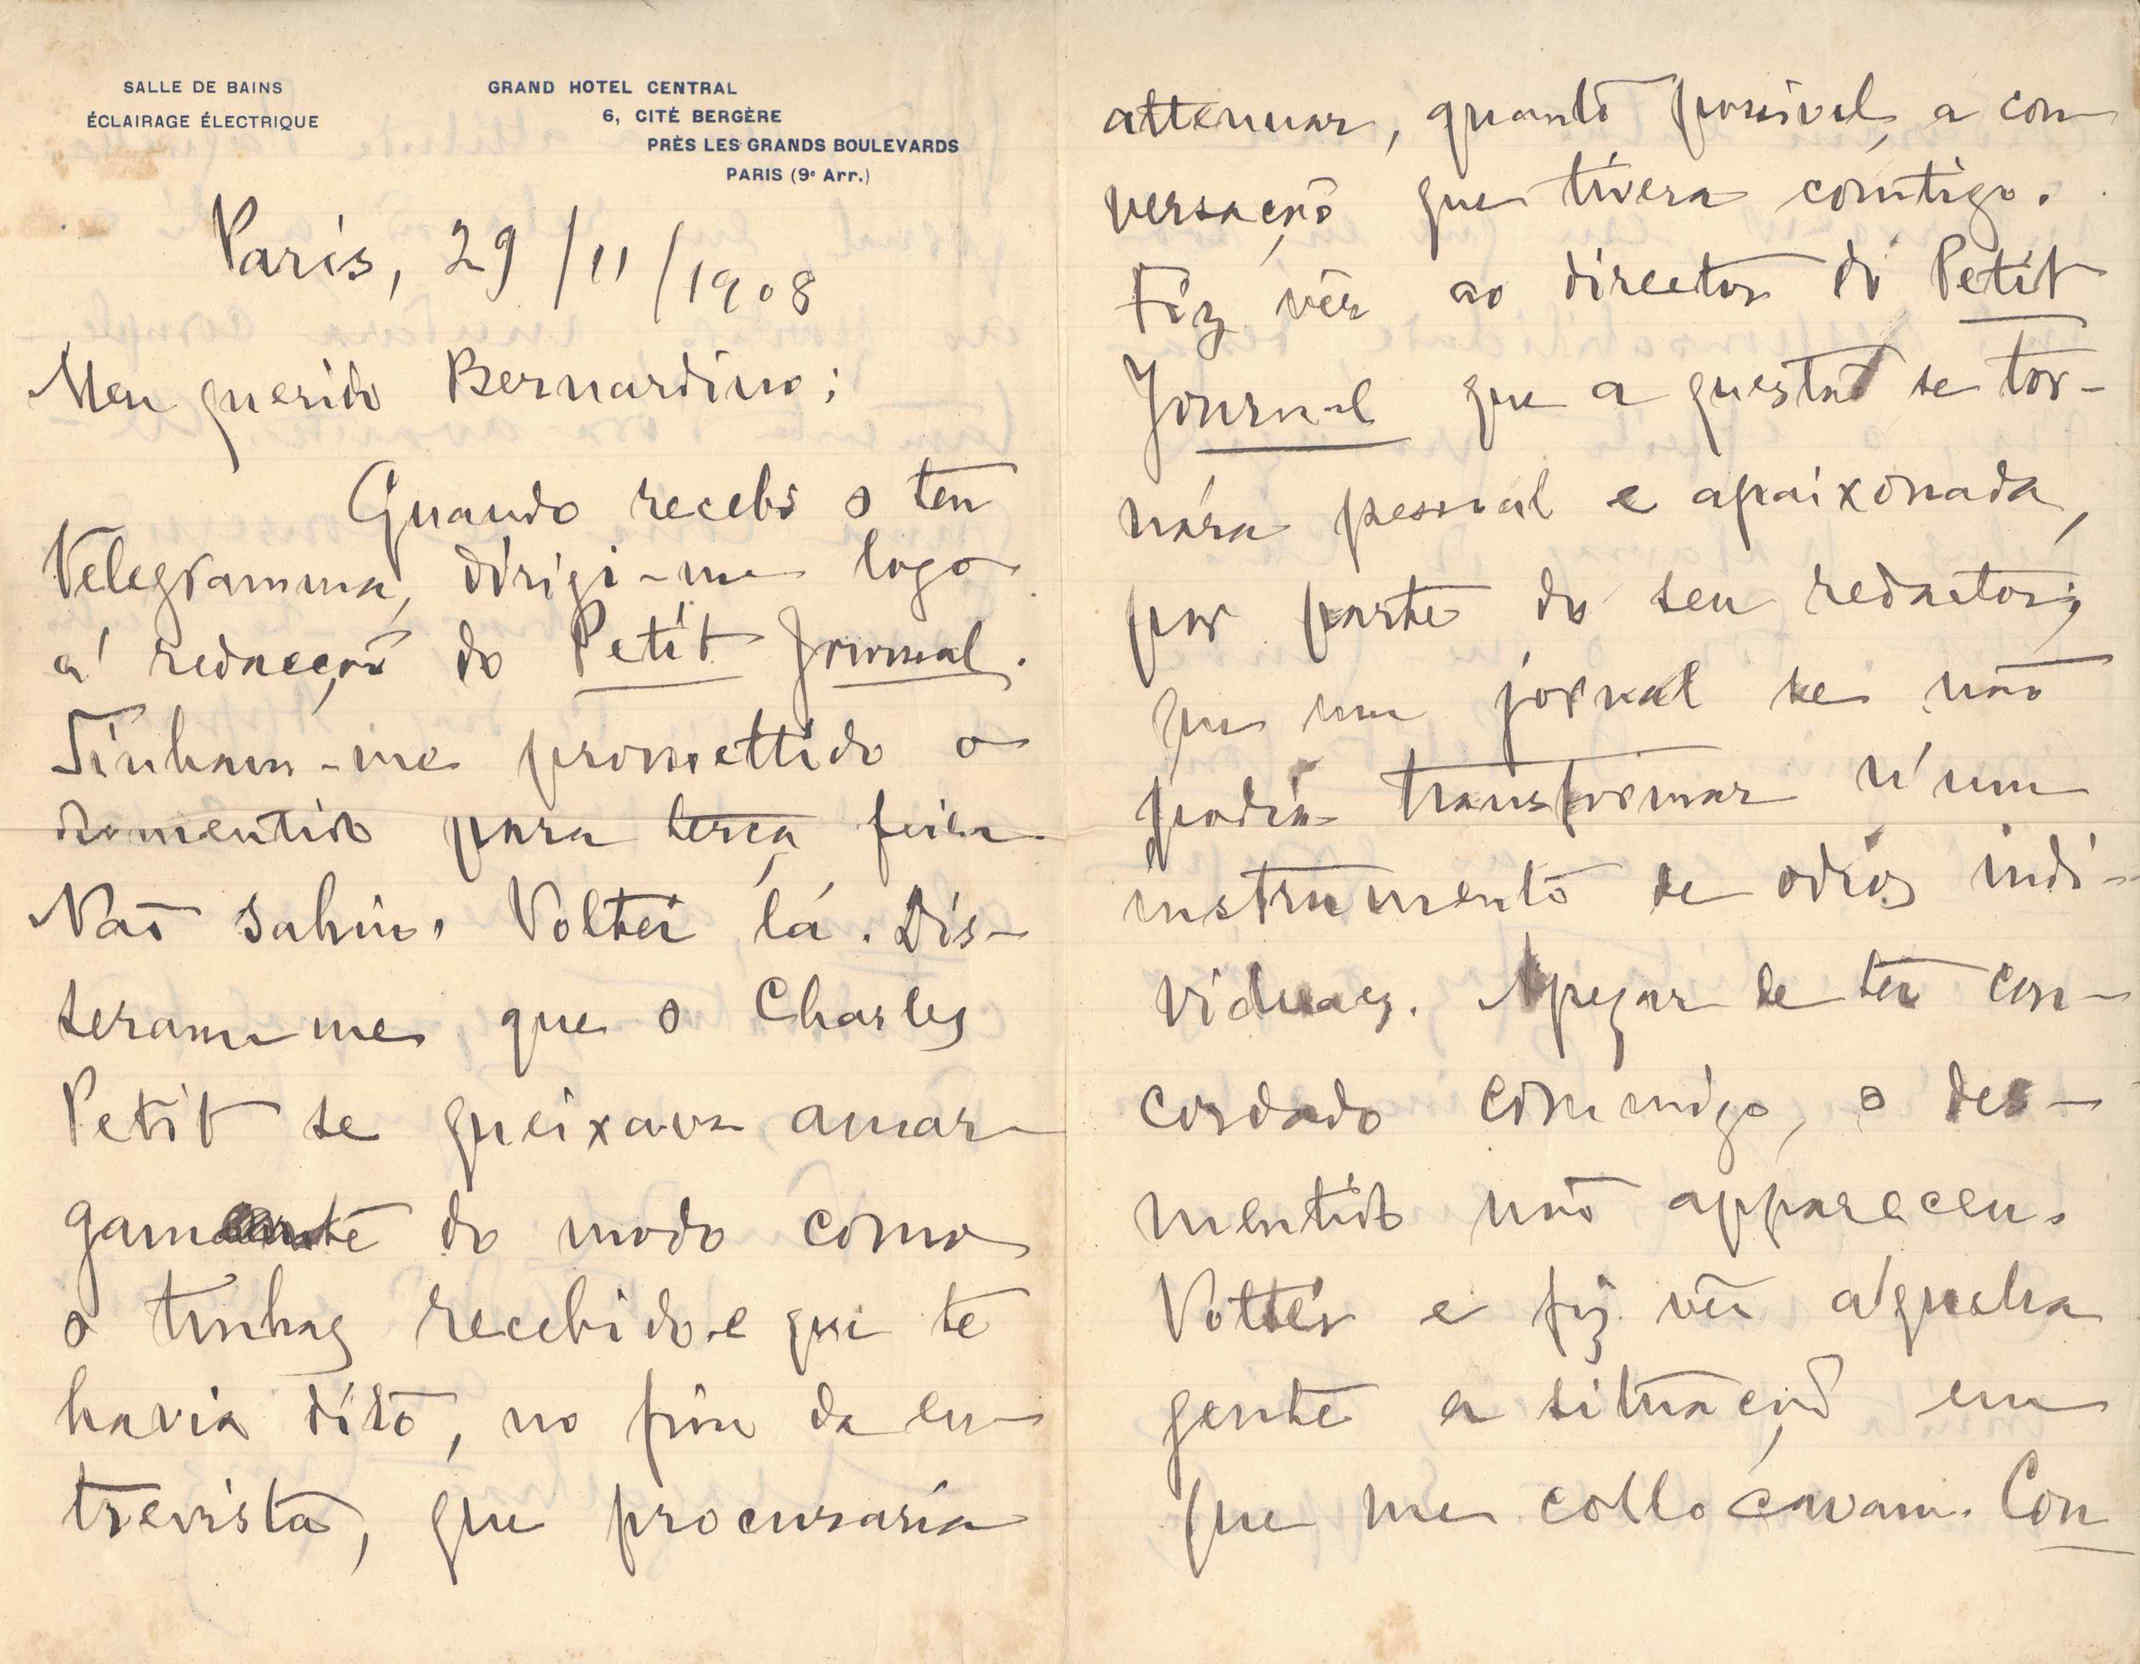 SALLE DE BAINS
ÉCLAIRAGE ÉLECTRIQUE
GRAND HOTEL CENTRAL
6, CITÉ BERGÈRE
PRÈS LES GRANDS BOULEVARDS
PARIS (9e Arr.)
Paris, 29/11/1908
Meu querido Bernardino:
Quando recebi o teu
telegramma, dirigi-me logo
á redacção do Petit Journal.
Tinham-me promettido o
desmentido para terça feira.
Não sahiu. Voltei lá. Dis-
seram-me que o Charles
Petit se queixava amar-
gamente do modo como
o tinhas recebido e que te
havia dito, no fim da en-
trevista, que procuraria
attenuar, quanto possivel, a con-
versação que tivera comtigo.
Fiz vêr ao director do Petit
Journal que a questão se tor-
nára pessoal e apaixonada,
por parte do seu redactor;
que um jornal se não
podia transformar n'um
instrumento de odios indi-
viduaes. Apezar de ter con-
cordado commigo, o des-
mentido não appareceu.
Voltei e fiz vêr áquella
gente a situação em
que me collocavam. Con